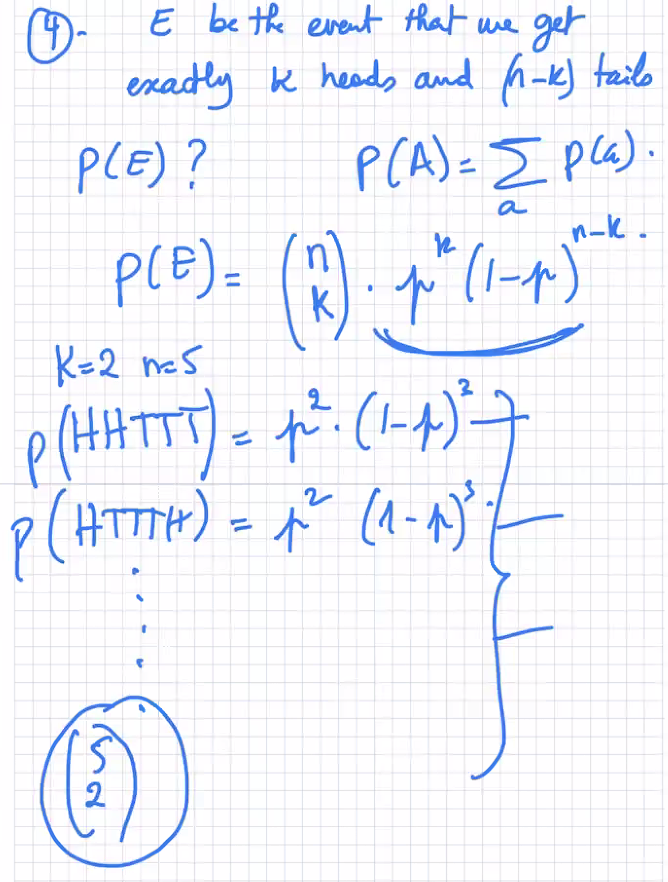 ④. E be the event that we get
exactly k heads and (n-k) tails
P(E)? P(A) = ∑ₐ P(a).
P(E) = (n k) · p^k (1-p)^{n-k}.
K=2 n=5
P(HHTTT) = p^2 · (1-p)^3
P(HTTTH) = p^2 (1-p)^3
(5 2)